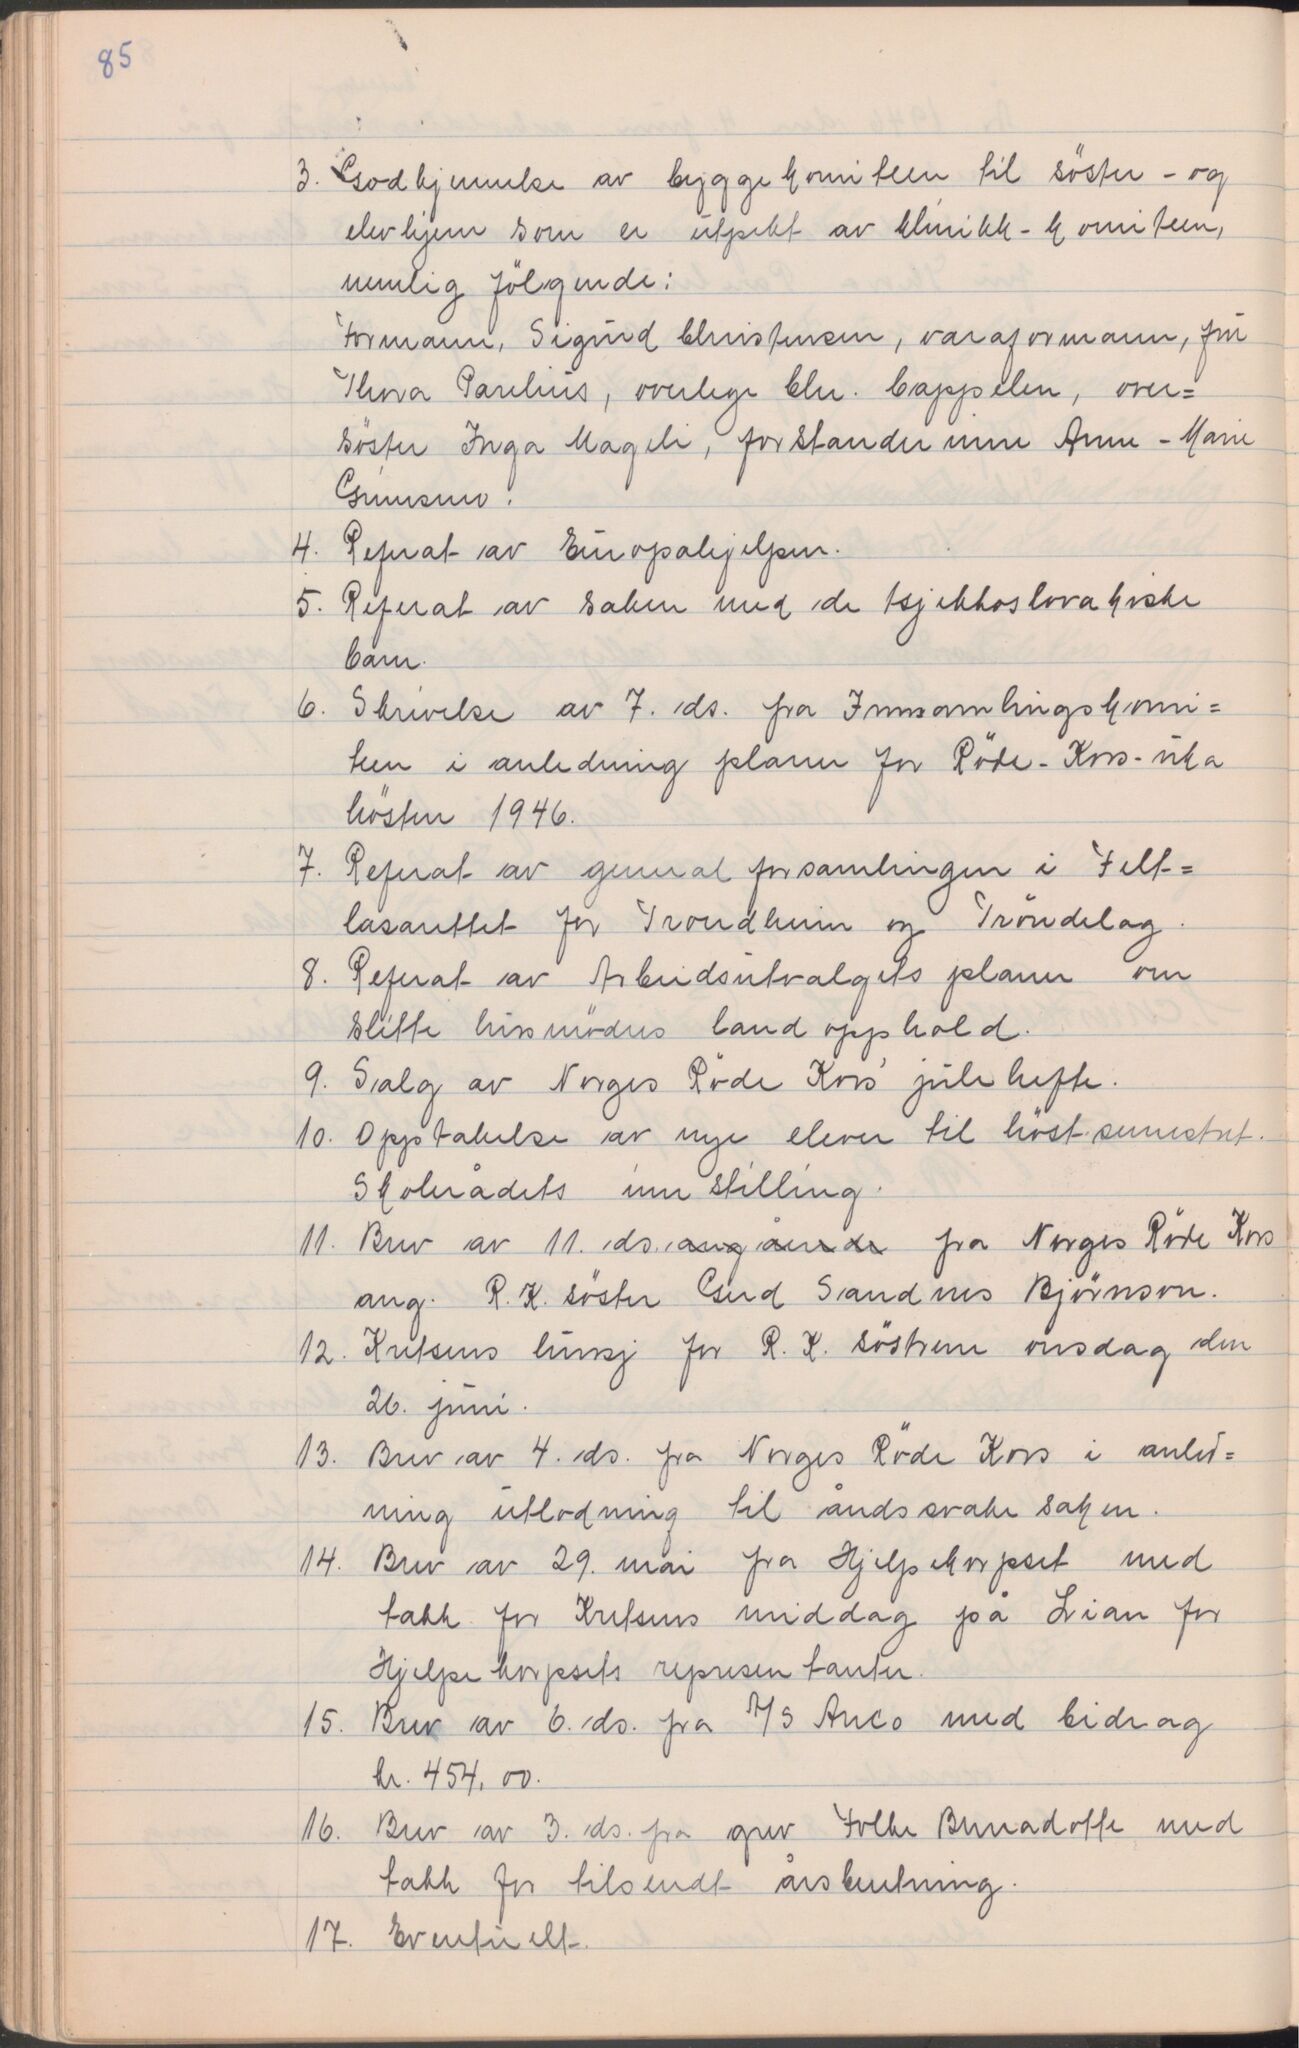 85
3. Godkjennelse av byggekomiteen til söster - og
elevhjem som er utpekt av klinikk-komiteen,
nemlig fölgende:
Formann, Sigurd Christensen, varaformann, fru
Thora Parelius, overlege Chr. Cappelen, over=
söster Inga Mageli, forstanderinne Anne-Marie
4. Referat av Europahjelpen.
5. Referat av saken med de tsjekkoslovakiske
barn.
6. Skrivelse av 7. ds. fra Innsamlingskomi=
teen i anledning planer for Röde-Kors-uka
hösten 1946.
7. Referat av generalforsamlingen i Felt=
lasarettet for Trondheim og Tröndelag.
8. Referat av Arbeidsutvalgets planer om
slitte husmödres landopphold.
9. Salg av Norges Röde Kors' julehefte.
10. Opptakelse av nye elever til höst-semestret.
Skolerådets innstilling.
11. Brev av 11. ds. angående fra Norges Röde Kors
ang. R.K. söster Gerd Sandnes Björnson.
12. Kretsens lunsj for R.K. söstrene onsdag den
26. juni.
13. Brev av 4. ds. fra Norges Röde Kors i anled=
ning utlodning til åndssvakesaken.
14. Brev av 29. mai fra Hjelpekorpset med
takk for Kretsens middag på Lian for
Hjelpekorpsets representanter.
15. Brev av 6. ds. fra A/S Anco med bidrag
kr. 454,00.
16. Brev av 3. ds. fra grev Folke Bernadotte med
takk for tilsendt årsberetning.
17. Eventuelt.